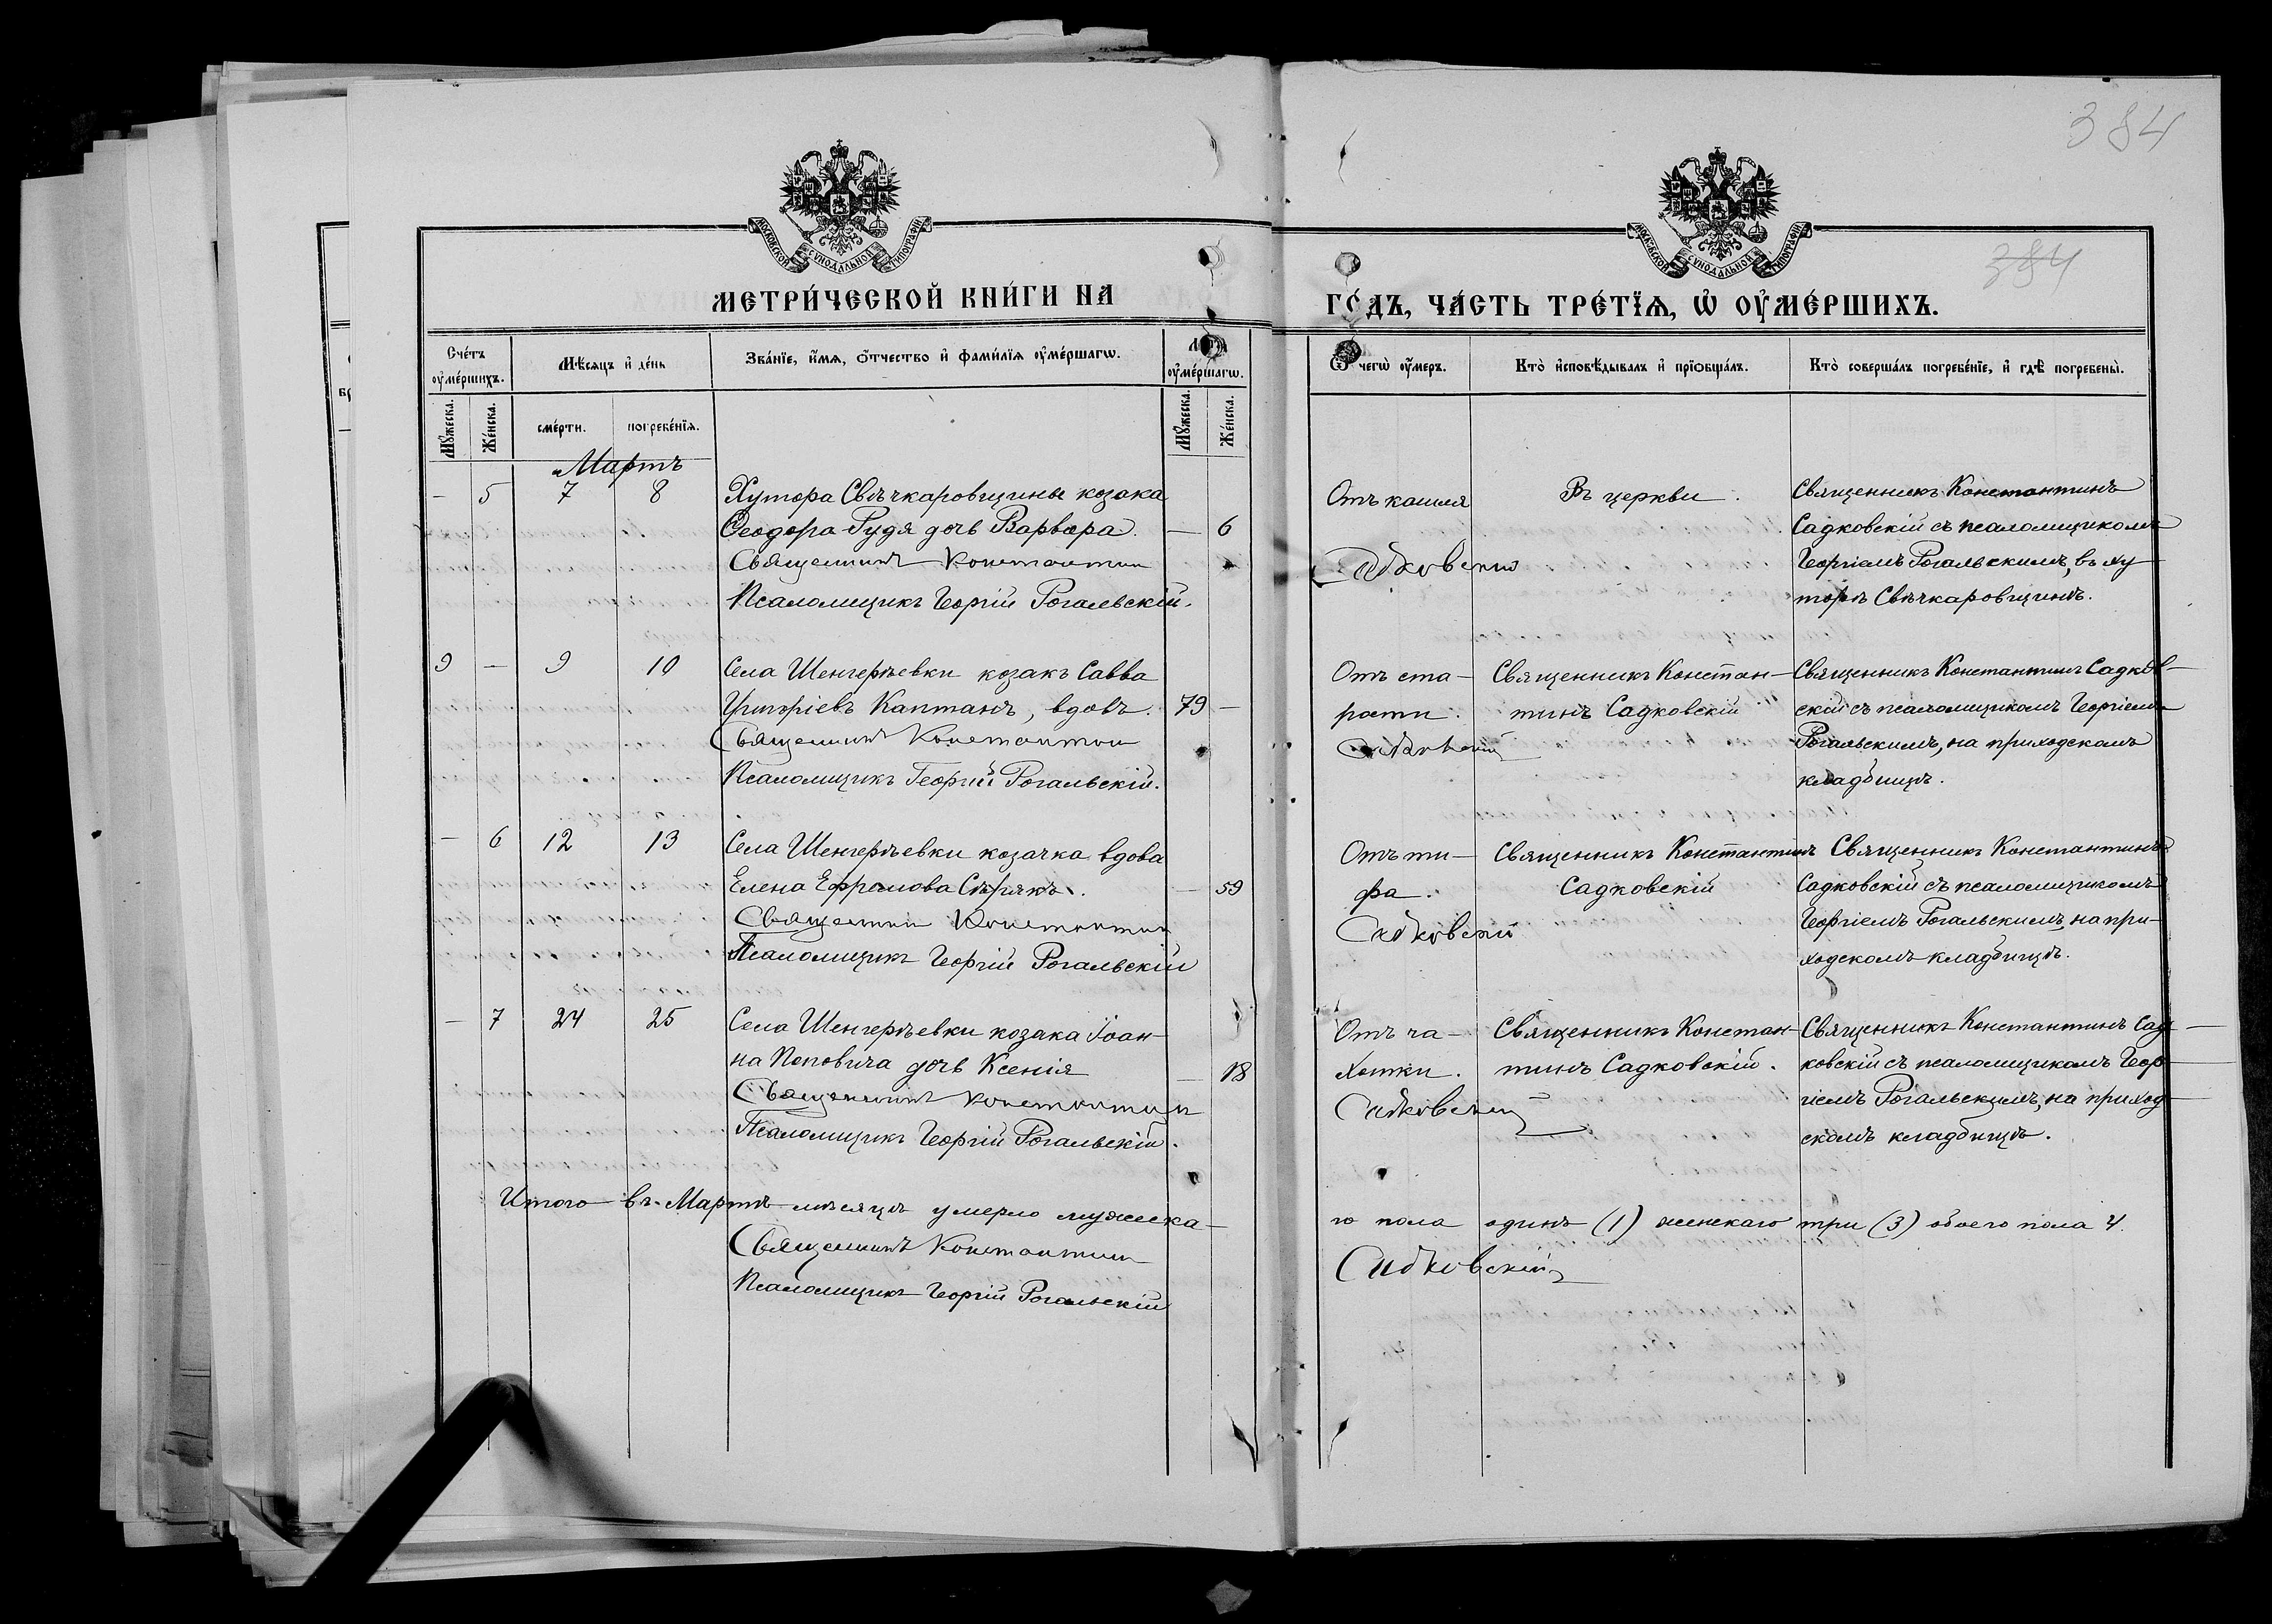 384
МОСКОВСКОЙ СѴНОДАЛЬНОЙ ТИПОГРАФІИ
МОСКОВСКОЙ СѴНОДАЛЬНОЙ ТИПОГРАФІИ
384
МЕТРИ́ЧЕСКОЙ КНИ́ГИ НА
ГО́ДЪ, ЧА́СТЬ ТРЕ́ТЇѦ, Ѡ҆ ОУ҆МЕ́РШИХЪ.
Сче́тъ оу҆ме́ршихъ.
Мѣ́сяцъ и҆ де́нь
Зва́нїе, и҆́мѧ, ѻ҆́тчество и҆ фами́лїѧ оу҆ме́ршагѡ.
Лѣта оу҆ме́ршагѡ.
Ѿ чегѡ̀ оу҆́меръ.
Кто̀ и҆сповѣ́дывалъ и҆ прїѻбща́лъ.
Кто̀ соверша́лъ погребе́нїе, и҆ гдѣ̀ погребены̀.
Мꙋ́жеска.
Же́нска.
сме́рти.
погребе́нїѧ.
Мꙋ́жеска.
Же́нска.
Мартъ
— 5 7 8 Хутора Свѣчкаровщины козака
Ѳеодора Рудя дочь Варвара. — 6
Священникъ Константин
Псаломщикъ Георгій Рогальскій.
Отъ кашля
Садковскій
Въ церкви.
Священникъ Константинъ
Садковскій съ псаломщикомъ
Георгіемъ Рогальскимъ, въ ху
торѣ Свѣчкаровщинѣ.
9 — 9 10 Села Шенгерѣевки козакъ Савва
Григоріевъ Каптанъ, вдовъ. 79 —
Священникъ Константин
Псаломщикъ Георгій Рогальскій.
Отъ ста-
рости.
Садковскій
Священникъ Констан-
тинъ Садковскій
Священникъ Константинъ Садков-
скій съ псаломщикомъ Георгіемъ
Рогальскимъ, на приходскомъ
кладбищѣ.
— 6 12 13 Села Шенгерѣевки козачка вдова
Елена Ефремова Сѣрякъ. — 59
Священник Константин
Псаломщикъ Георгій Рогальскій
Отъ ти-
фа.
Садковскій
Священникъ Константинъ
Садковскій
Священникъ Константинъ
Садковскій съ псаломщикомъ
Георгіемъ Рогальскимъ, на при-
ходскомъ кладбищѣ.
— 7 24 25 Села Шенгерѣевки козака Іоан-
на Поповича дочь Ксенія — 18
Священникъ Константин
Псаломщикъ Георгій Рогальскій.
Отъ ча-
хотки.
Садковскій
Священникъ Констан-
тинъ Садковскій.
Священникъ Константинъ Сад-
ковскій съ псаломщикомъ Геор-
гіемъ Рогальскимъ, на приход-
скомъ кладбищѣ.
Итого въ Мартѣ мѣсяцѣ умерло мужска-
го пола одинъ (1) женскаго три (3) обоего пола 4.
Священникъ Константин
Садковскій
Псаломщикъ Георгій Рогальскій